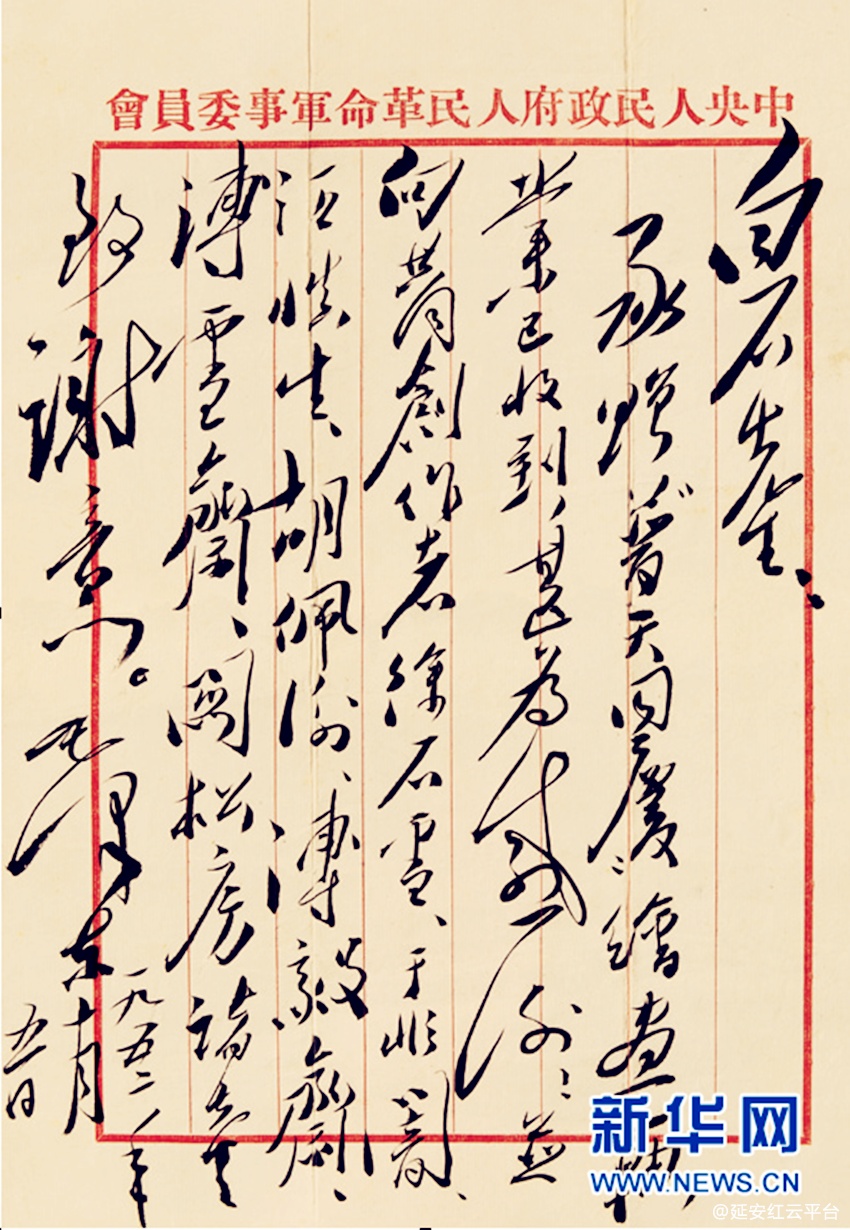 中央人民政府人民革命軍事委員會
白石先生：
承贈普天同慶繪畫一軸
業已收到、甚為感謝、並
向共同創作者徐石雪、于非闇、
汪慎生、胡佩衡、溥毅齋、
溥雪齋、關松房諸先生
致謝意。毛澤東
一九五二年
十月
五日
新华网
WWW.NEWS.CN
@延安红云平台